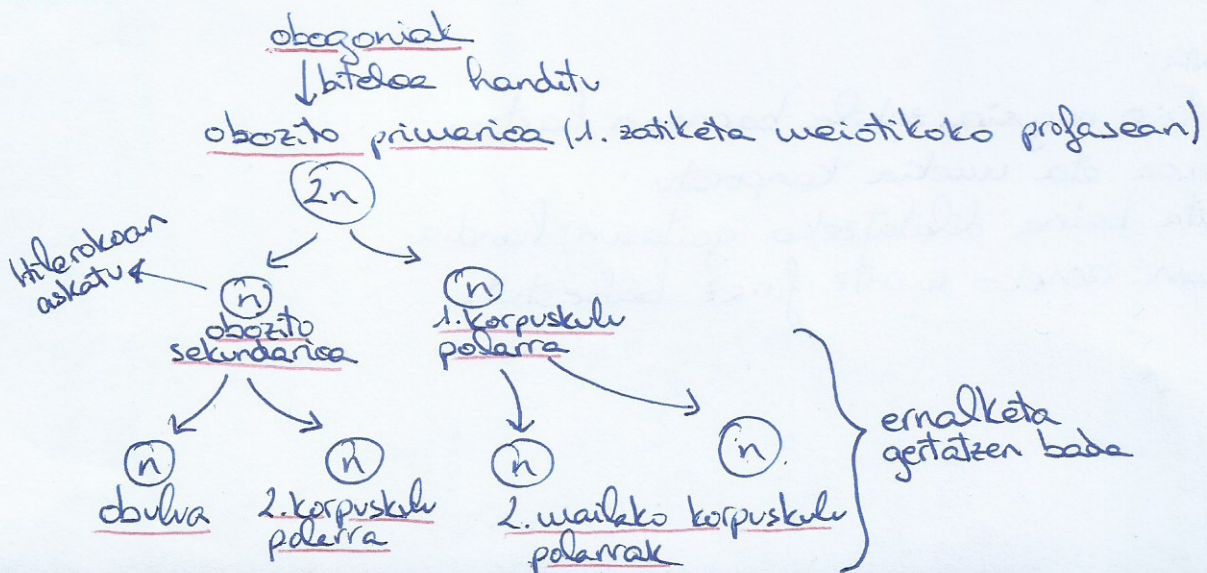 obogoniak
↓ biteloa handitu
obozito primarioa (1. zatiketa meiotikoko profasean)
2n
Hilerokoan
askatu
n
n
obozito
sekundarioa
1. korpuskulu
polarra
n
n
n
n
obulua
2. korpuskulu
polarra
2. mailako korpuskulu
polarrak
ernalketa
gertatzen bada